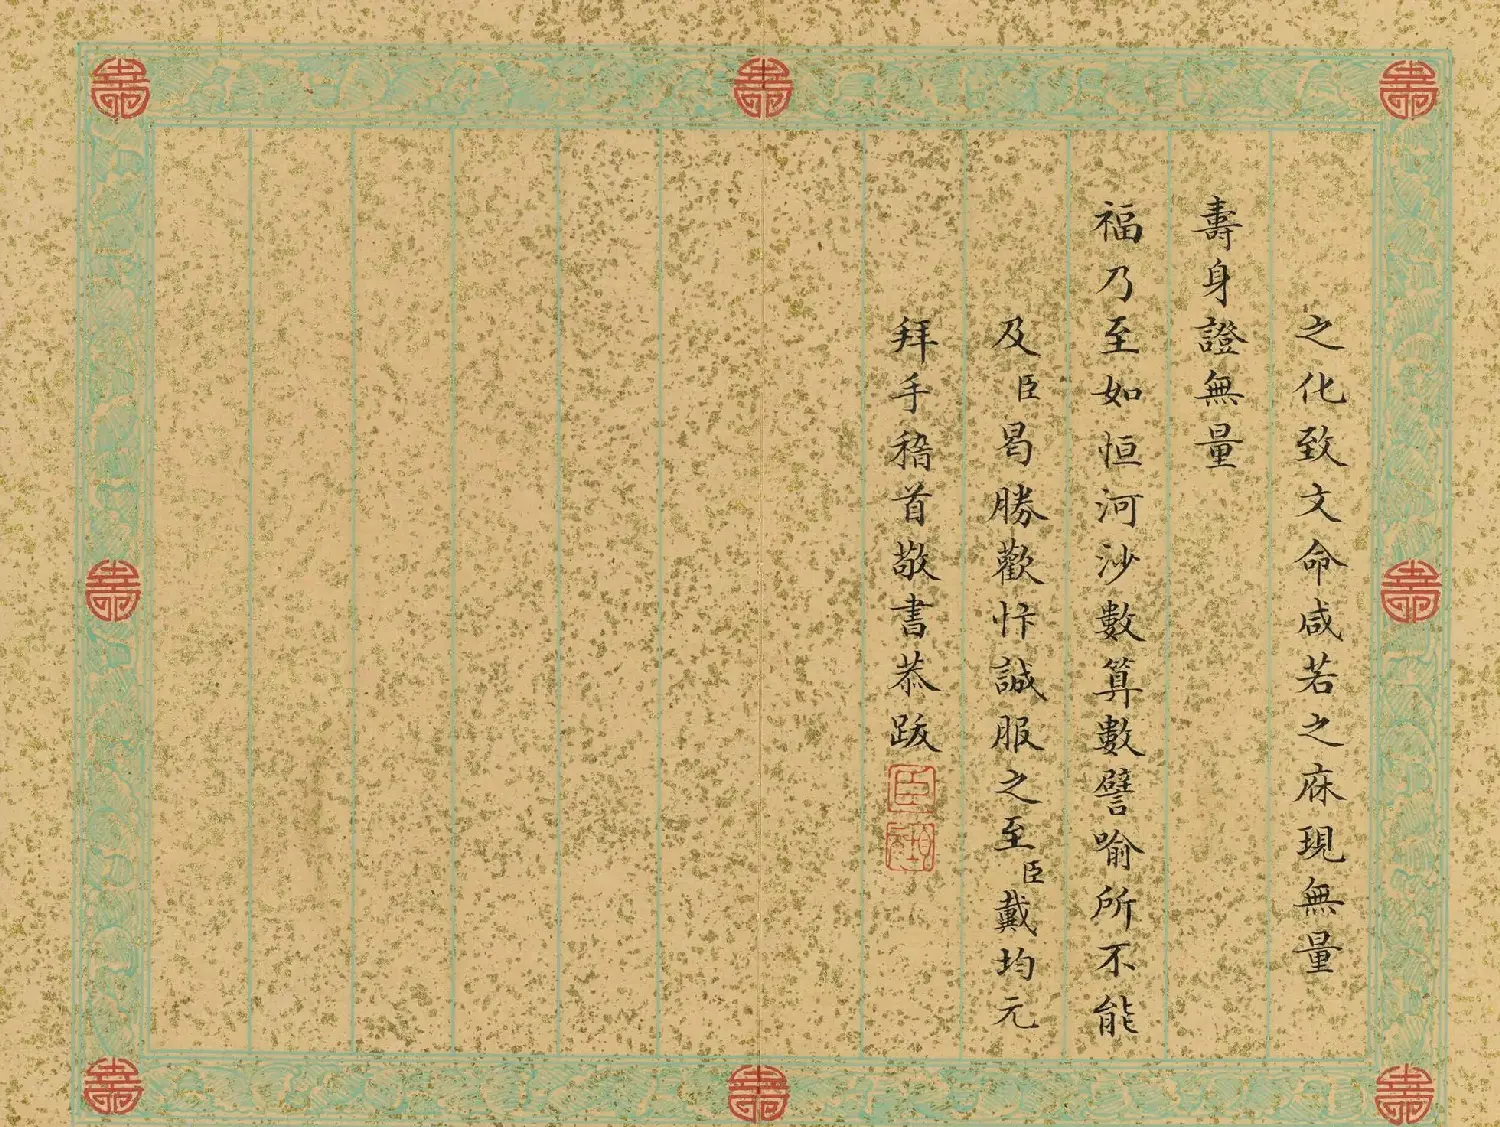 之化致文命咸若之庥現無量
壽身證無量
福乃至如恒河沙數算數譬喻所不能
及臣曷勝歡忭誠服之至臣戴均元
拜手稽首敬書恭跋
臣